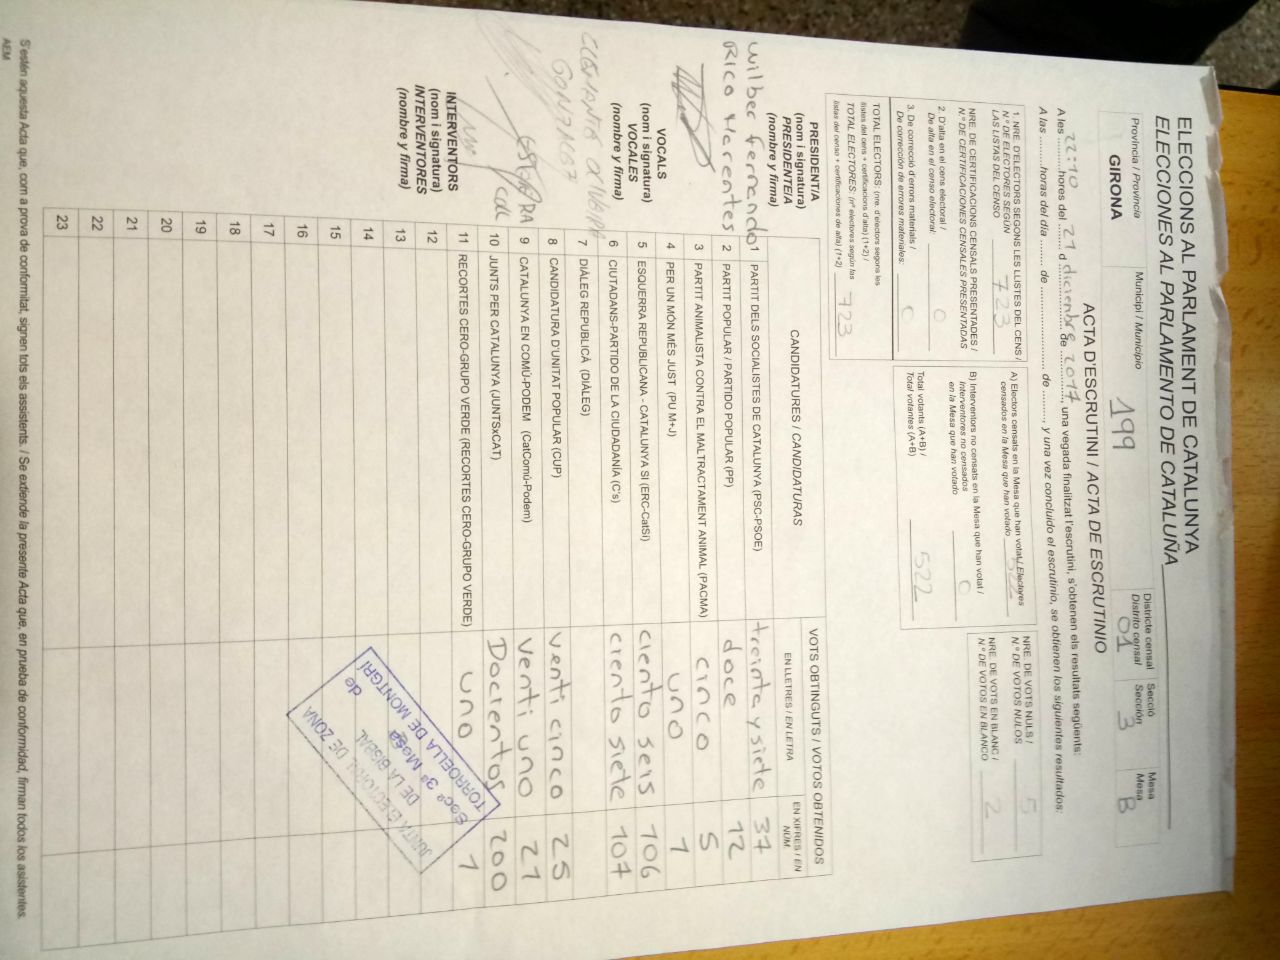 ELECCIONS AL PARLAMENT DE CATALUNYA
ELECCIONES AL PARLAMENTO DE CATALUÑA
Província / Provincia
GIRONA
Municipi / Municipio
199
Districte censal
Distrito censal
01
Secció
Sección
3
Mesa
Mesa
B
ACTA D'ESCRUTINI / ACTA DE ESCRUTINIO
A les 22:10 hores del 21 d diciembre de 2017, una vegada finalitzat l'escrutini, s'obtenen els resultats següents:
A las .......... horas del día .......... de .......... de .........., y una vez concluido el escrutinio, se obtienen los siguientes resultados:
1. NRE. D'ELECTORS SEGONS LES LLISTES DEL CENS /
N.º DE ELECTORES SEGÚN
LAS LISTAS DEL CENSO 723
NRE. DE CERTIFICACIONS CENSALS PRESENTADES /
N.º DE CERTIFICACIONES CENSALES PRESENTADAS
2. D'alta en el cens electoral /
De alta en el censo electoral: 0
3. De correcció d'errors materials /
De corrección de errores materiales: 0
TOTAL ELECTORS: (nre. d'electors segons les
llistes del cens + certificacions d'alta) (1+2) /
TOTAL ELECTORES: (nº electores según las
listas del censo + certificaciones de alta) (1+2) 723
A) Electors censats en la Mesa que han votat / Electores
censados en la Mesa que han votado 522
B) Interventors no censats en la Mesa que han votat /
Interventores no censados
en la Mesa que han votado 0
Total votants (A+B) /
Total votantes (A+B) 522
NRE. DE VOTS NULS /
N.º DE VOTOS NULOS 5
NRE. DE VOTS EN BLANC /
N.º DE VOTOS EN BLANCO 2
CANDIDATURES / CANDIDATURAS
VOTS OBTINGUTS / VOTOS OBTENIDOS
EN LLETRES / EN LETRA
EN XIFRES / EN NÚM.
1 PARTIT DELS SOCIALISTES DE CATALUNYA (PSC-PSOE) treinta y siete 37
2 PARTIT POPULAR / PARTIDO POPULAR (PP) doce 12
3 PARTIT ANIMALISTA CONTRA EL MALTRACTAMENT ANIMAL (PACMA) cinco 5
4 PER UN MÓN MÉS JUST (PUM+J) uno 1
5 ESQUERRA REPUBLICANA - CATALUNYA SI (ERC-CatSí) ciento seis 106
6 CIUTADANS-PARTIDO DE LA CIUDADANÍA (C's) ciento siete 107
7 DIÀLEG REPUBLICÀ (DIÀLEG)
8 CANDIDATURA D'UNITAT POPULAR (CUP) venti cinco 25
9 CATALUNYA EN COMÚ-PODEM (CatComú-Podem) Venti uno 21
10 JUNTS PER CATALUNYA (JUNTSxCAT) Docientos 200
11 RECORTES CERO-GRUPO VERDE (RECORTES CERO-GRUPO VERDE) uno 1
12
13
14
15
16
17
18
19
20
21
22
23
PRESIDENT/A
(nom i signatura)
PRESIDENTE/A
(nombre y firma)
Wilber Fernando
Rico Herentes
VOCALS
(nom i signatura)
VOCALES
(nombre y firma)
INTERVENTORS
(nom i signatura)
INTERVENTORES
(nombre y firma)
JUNTA ELECTORAL DE ZONA
DE LA BISBAL
Secº 3ª Mesa
de
TORROELLA DE MONTGRÍ
S'estén aquesta Acta que, com a prova de conformitat, signen tots els assistents. / Se extiende la presente Acta que, en prueba de conformidad, firman todos los asistentes.
AEM